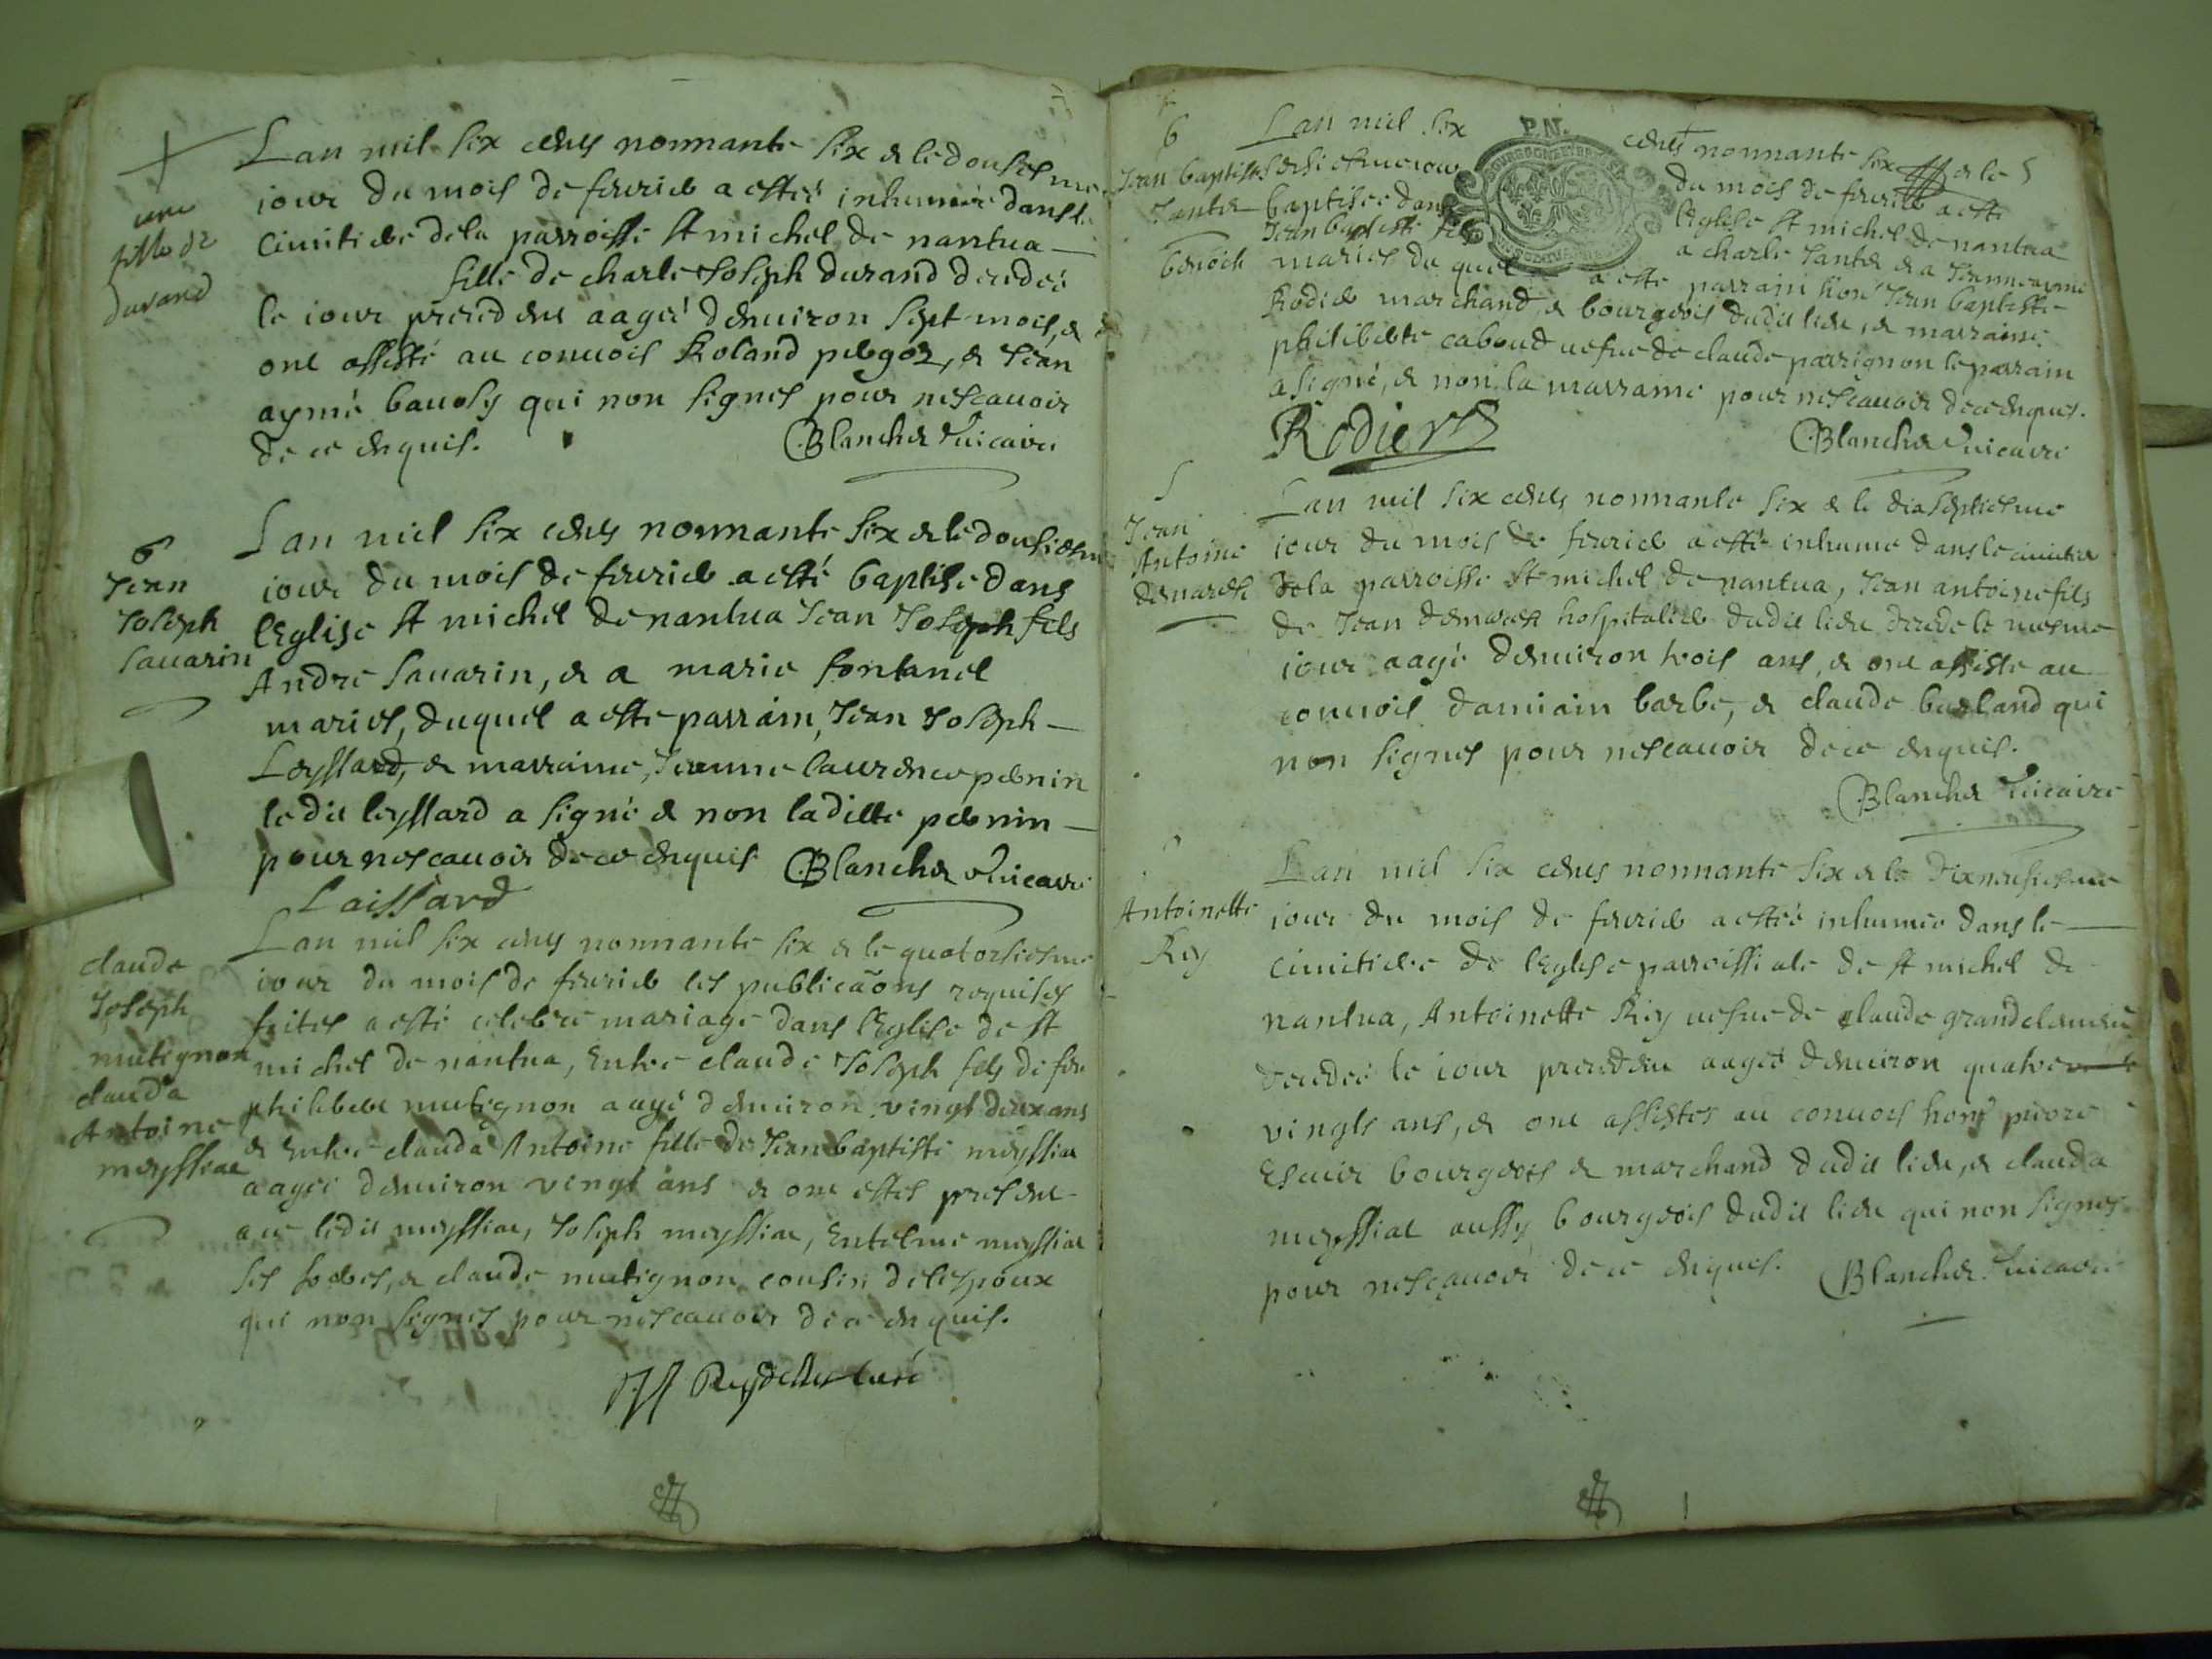 une
fille de
durand
Lan mil six cents nonnante six & le dousiesme
iour du mois de feurier a estée inhumée dans le
Cimitiere de la parroisse st michel de nantua
fille de charle Joseph durand decedeé
le iour precedent aageé denuiron sept mois, &
ont assisté au conuois Roland pergod, & Jean
aymé bauoly qui non signes pour nescauoir
de ce enquis. Blanchet Vuicaire
6
Jean
Joseph
sauarin
Lan mil six cents nonnante six & le dousiesme
iour du mois de feurier a esté baptisé dans
lEglise st michel de nantua Jean Joseph fils
André sauarin, & a marie fontanel
maries, duquel a esté parrain, Jean Joseph
Leyssard, & marraine, Jeanne laurence pernin
ledit leyssard a signé & non laditte pernin
pour nescauoir de ce enquis Blanchet Vuicaire
Laissard
claude
Joseph
mutignon
clauda
Antoine
meyssiat
Lan mil six cents nonnante six & le quatorsiesme
iour du mois de feurier les publicaõns requises
faites a esté celebré mariage dans lEglise de st
michel de nantua, Entre claude Joseph fils de feu
philibert mutignon aagé denuiron vingt deux ans
& Entre clauda Antoine fille de Jean baptiste meyssiat
aageé denuiron vingt ans & ont estes present
a ce ledit meyssiat, Joseph meyssiat, Entelme meyssiat
ses freres, & claude mutignon cousin de lespoux
qui non signes pour nescauoir de ce enquis.
curé
6
Jean baptiste
Jantet
benoich
P.N.
Lan mil six cents nonnante six & le
du mois de feurier a esté
baptisee dans lEglise st michel de nantua
Jean baptiste fils a charle Jantet & a Jeanne aymé
maries du quel a esté parrain honé Jean baptiste
Rodier marchand & bourgeois dudit lieu, & marraine
philiberte caboud uefue de claude parrignon le parrain
a signé, & non la marraine pour nescauoir de ce enquis.
Rodier Blanchet Vuicaire
Jean
Antoine
demarest
Lan mil six cents nonnante six & le dixseptiesme
iour du mois de feurier a esté inhumé dans le cimitiere
de la parroisse st michel de nantua, Jean antoine fils
de Jean demarest hospitalier dudit lieu decedé le mesme
iour aagé denuiron trois ans, & ont assisté au
conuois damiain barbe, & claude barland qui
non signes pour nescauoir de ce enquis.
Blanchet Vuicaire
Antoinette
Rey
Lan mil six cents nonnante six & le dixneufiesme
iour du mois de feurier a estée inhumée dans le
cimitiere de lEglise parroissiale de st michel de
nantua, Antoinette Rey uefue de claude grandclement
decedeé le iour precedent aageé denuiron quatre
vingts ans, & ont assistes au conuois honé pierre
Esuuir bourgeois & marchand dudit lieu, & clauda
meyssiat aussy bourgeois dudit lieu qui non signes
pour nescauoir de ce enquis. Blanchet Vuicaire